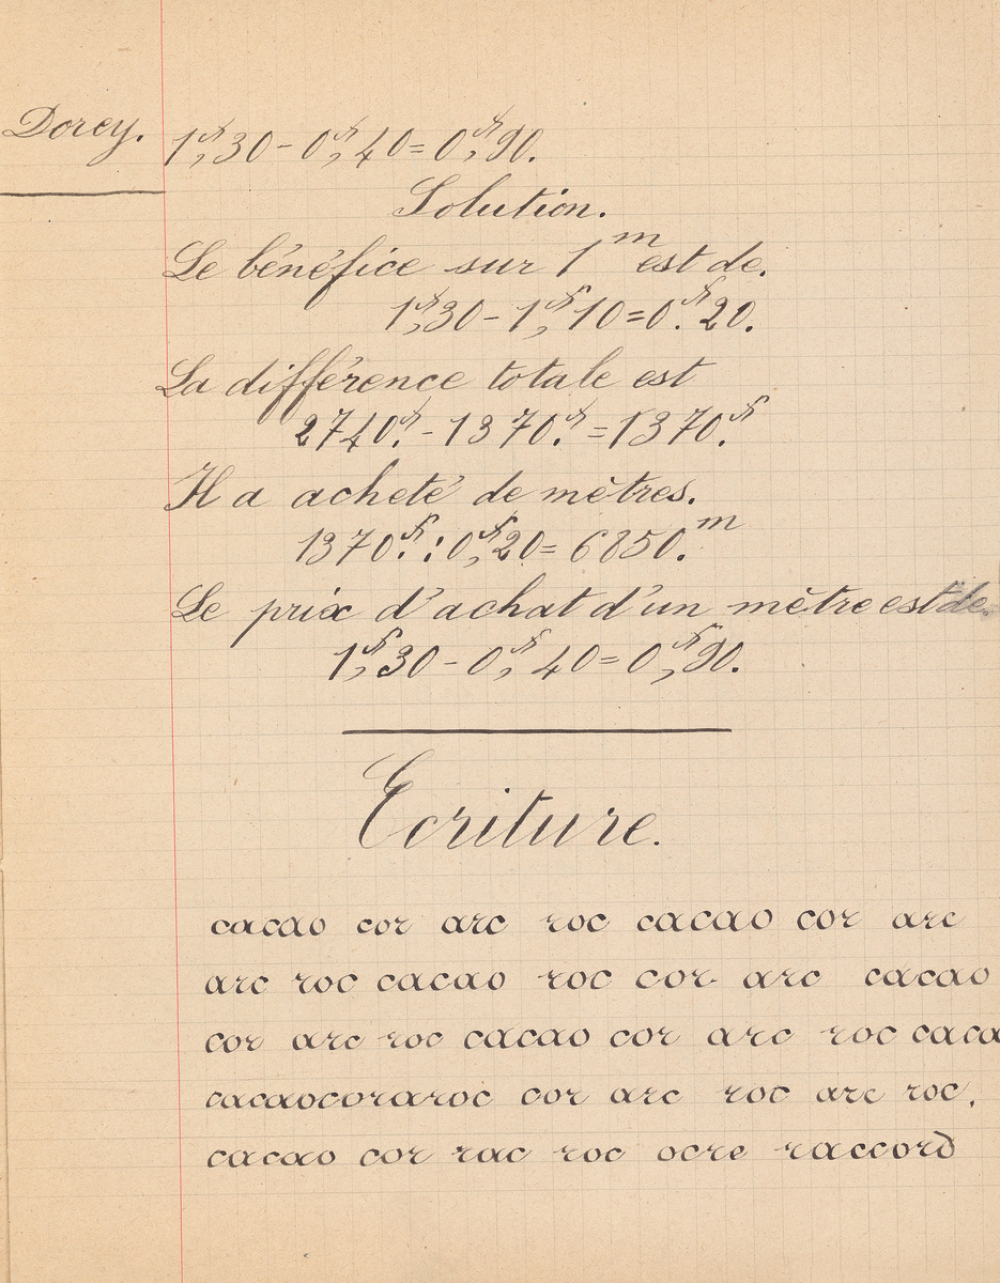 Dorey.
1fr,30 - 0fr,40 = 0fr,90.
Solution.
Le bénéfice sur 1m est de.
1fr,30 - 1fr,10 = 0fr.20.
La différence totale est
2740.fr - 1370.fr = 1370.fr
Il a acheté de mètres.
1370.fr : 0fr,20 = 6850.m
Le prix d'achat d'un mètre est de.
1fr,30 - 0fr,40 = 0fr,90.
Ecriture.
cacao cor arc roc cacao cor arc
arc roc cacao roc cor arc cacao
cor arc roc cacao cor arc roc caca
cacaocoraroc cor arc roc arc roc.
cacao cor rac roc ocre raccord